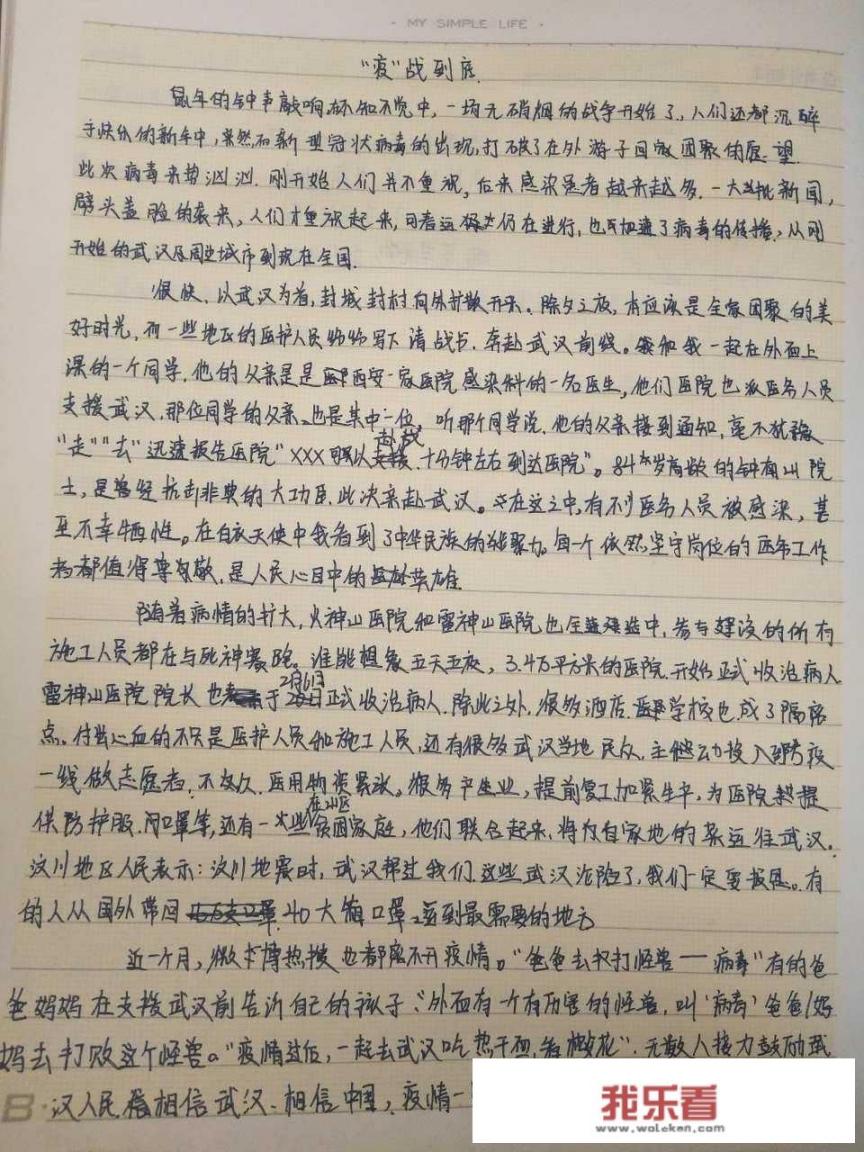 · MY SIMPLE LIFE ·
“疫”战到底
鼠年的钟声敲响,不知不觉中,一场无硝烟的战争开始了,人们还都沉醉
于快乐的新年中,果然,而新型冠状病毒的出现,打破了在外游子回家团聚的愿望
此次病毒来势汹汹.刚开始人们并不重视,后来感染患者越来越多.一大批新闻,
劈头盖脸的袭来,人们才重视起来,可春运仍在进行,也加速了病毒的传播,从刚
开始的武汉及周边城市到现在全国.
很快,以武汉为首,封城封村向外扩散开来.除夕之夜,本应该是全家团聚的美
好时光,而一些地区的医护人员纷纷写下请战书.奔赴武汉前线。和我一起在外面上
课的一个同学,他的父亲是是西安一家医院感染科的一名医生,他们医院也派医务人员
支援武汉.那位同学的父亲也是其中一位,听那个同学说.他的父亲接到通知,毫不犹豫
“走”“去”迅速报告医院“XXX可以赴战.十分钟左右到达医院”。84岁高龄的钟南山院
士,是曾经抗击非典的大功臣.此次亲赴武汉。在这之中,有不少医务人员被感染,甚
至不幸牺牲。在白衣天使中我看到了中华民族的凝聚力。每一个依然坚守岗位的医务工作
者都值得尊敬,是人民心目中的英雄
随着病情的扩大,火神山医院和雷神山医院也在建造中,参与建设的所有
施工人员都在与死神赛跑。谁能想象五天五夜,3.4万平方米的医院.开始正式收治病人
雷神山医院院长也于2月6日正式收治病人.除此之外,很多酒店.学校也成了隔离
点。付出心血的不只是医护人员和施工人员,还有很多武汉当地民众,主动投入到防疫
一线做志愿者.不仅如此.医用物资紧张。很多产业,提前复工加紧生产,为医院提
供防护服.口罩等,还有一些在山区贫困家庭,他们联合起来,将自家地的菜运往武汉。
汶川地区人民表示:汶川地震时,武汉帮过我们.这些武汉沦陷了,我们一定要报恩。有
的人从国外带回40大箱口罩,送到最需要的地方
近一个月,微博热搜也都离不开疫情。“爸爸去打怪兽——病毒”有的爸
爸妈妈在支援武汉前告诉自己的孩子:“外面有一个有厉害的怪兽,叫‘病毒’爸爸/妈
妈去打败这个怪兽。“疫情过后,一起去武汉吃热干面,看樱花”.无数人接力鼓励武
汉人民.相信武汉、相信中国,疫情一
我乐看
www.woleken.com